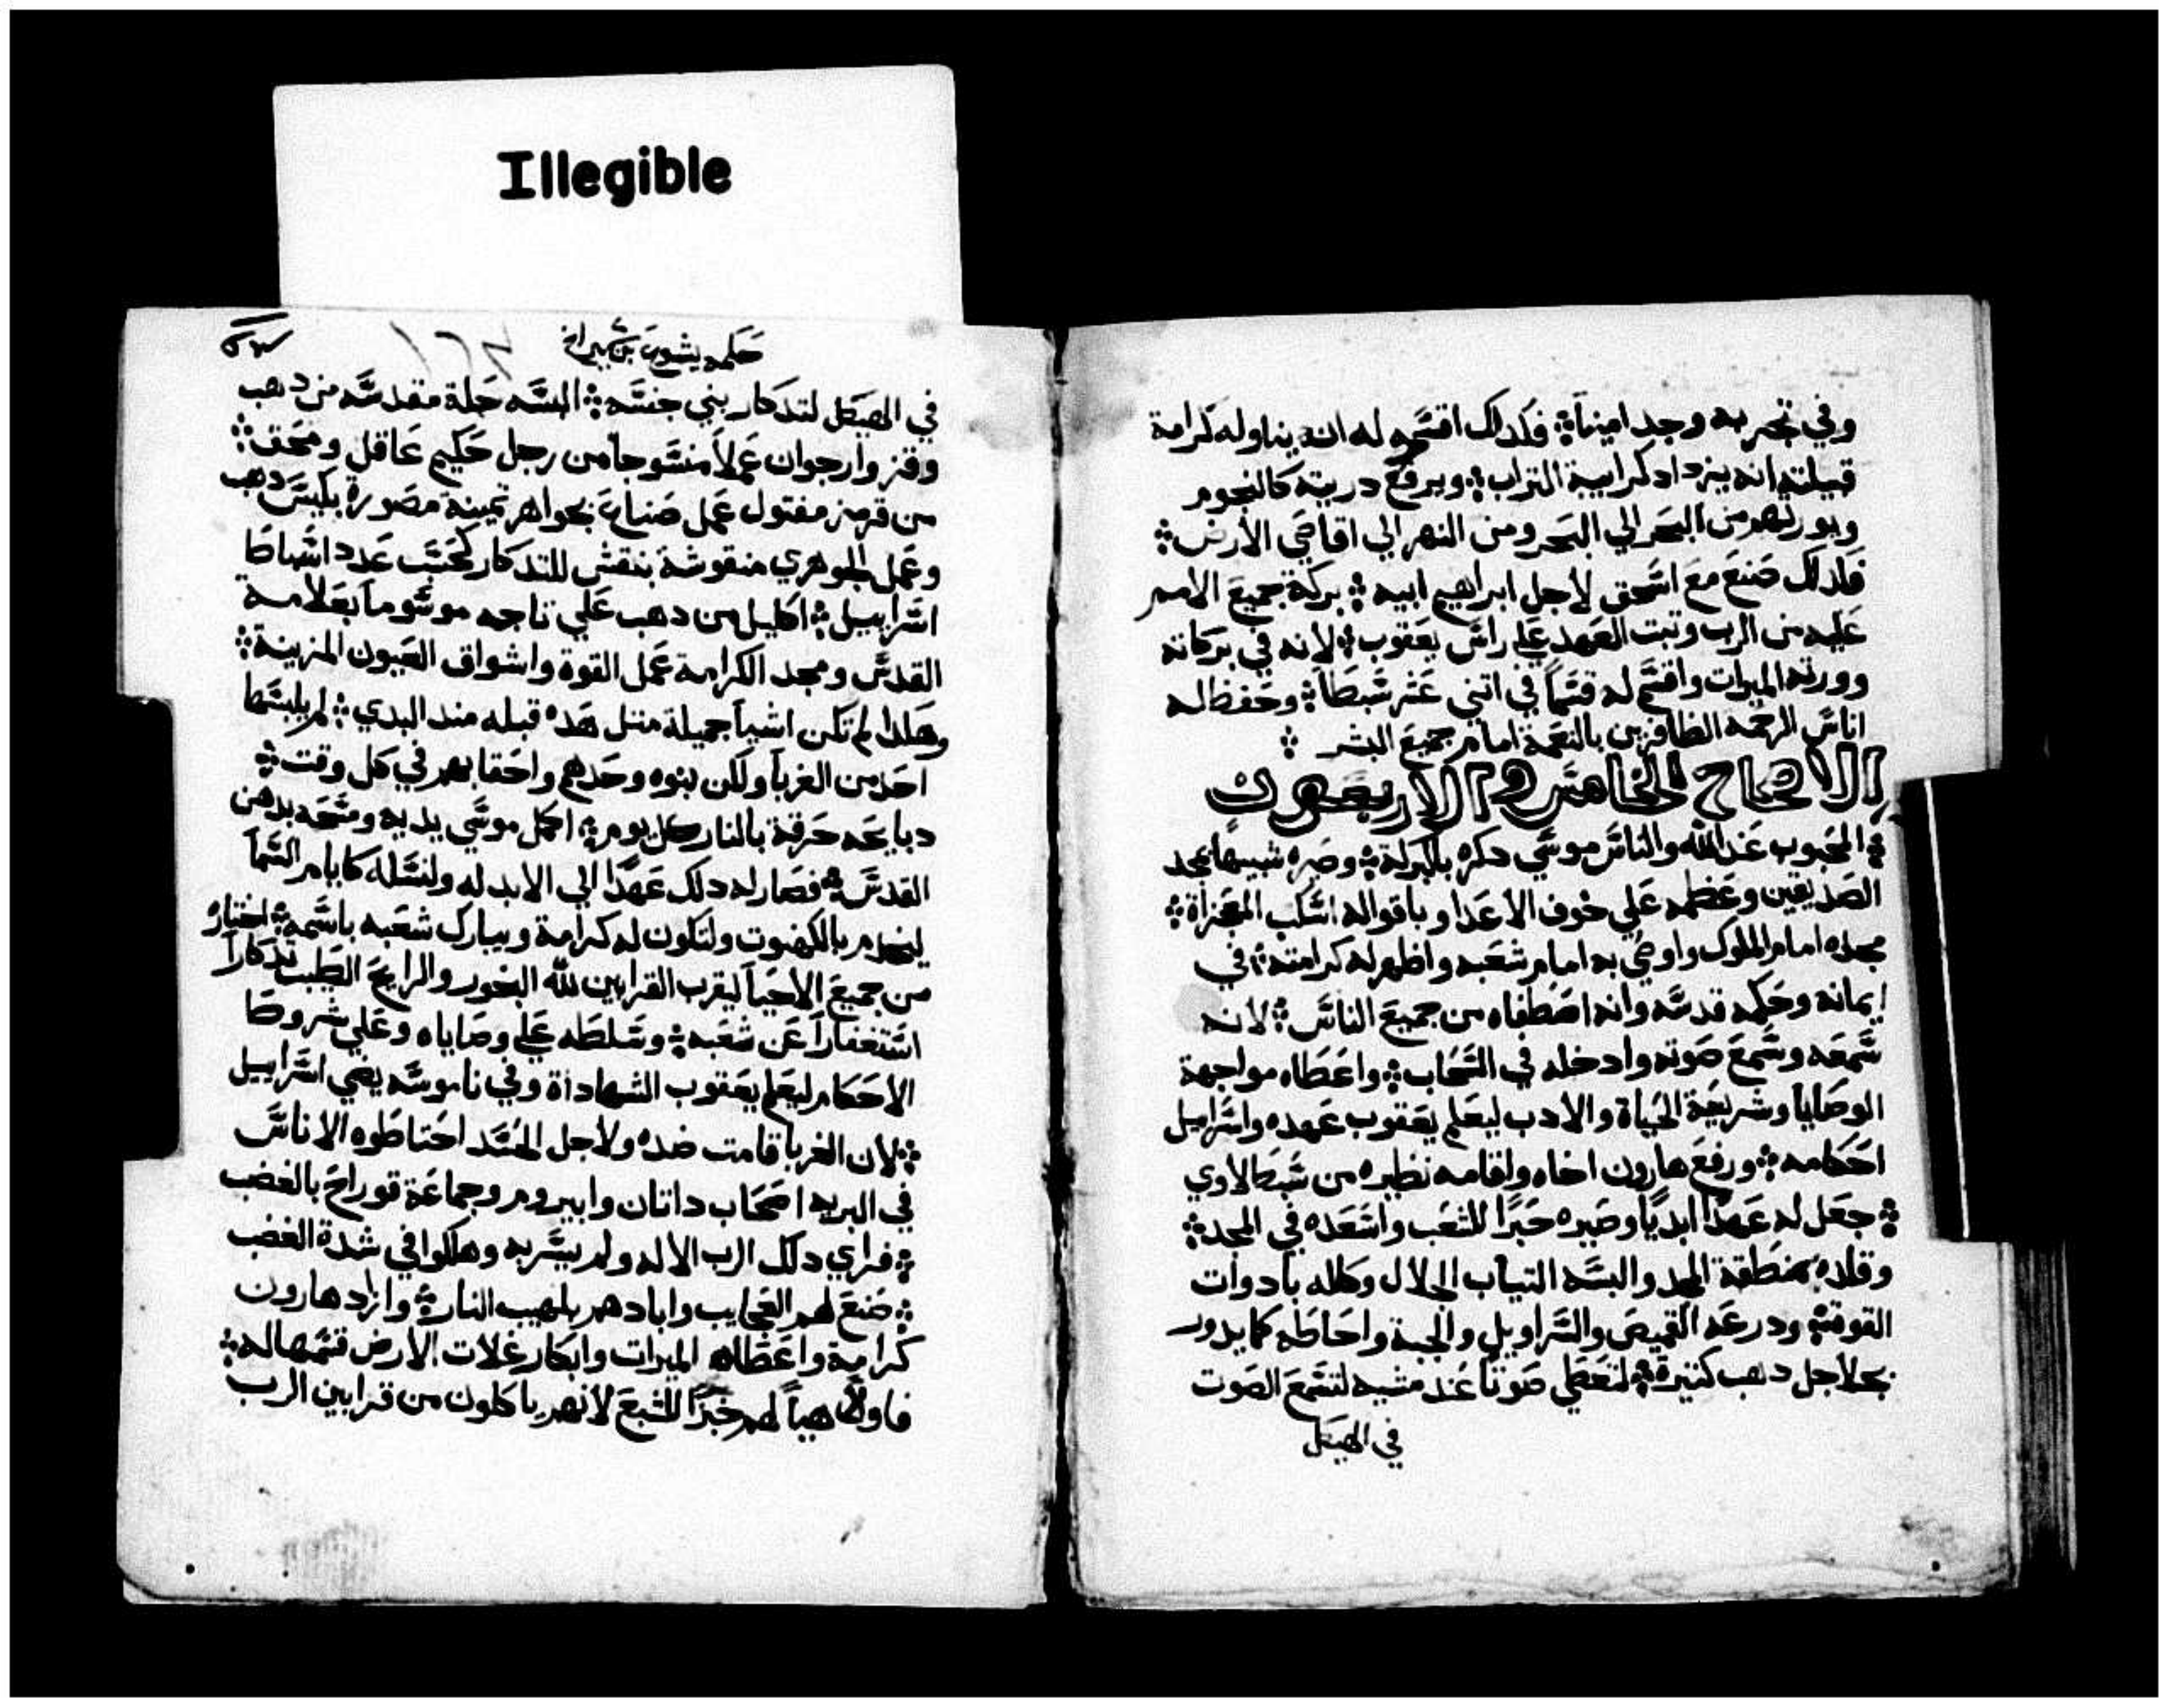 Illegible
وفي تجربه وجد امينا فكدلك اقسم له ان يناوله كرامة
قبيلته انه يزداد كرابية التراب ويرفع دريته كالنجوم
ويورتهم من البحر الي البحر ومن النهر الي اقاصي الأرض
فكدلك صنع مع اسحق لأجل ابراهيم ابيه بركة جميع الامم
عليه من الرب وتبت العهد علي راس يعقوب لانه في بركاته
وورته الميرات واقسم له قسما في اتني عشر شبطا وحفظ له
اناس الرحمه الظافرين بالنعمة امام جميع البشر
الاصحاح الخامس والاربعون
المحبوب عند الله والناس موسي دكره بالبركة وصيره شبيها بمجد
الصديقين وعظمه علي خوف الاعدا وباقواله اسكب المعجزاة
مجده امام الملوك واوصي به امام شعبه واظهر له كرامته في
ايمانه وحكمه قدسه وانه اصطفاه من جميع الناس لانه
سمعه وسمع صوته وادخله في السحاب واعطاه مواجهة
الوصايا وشريعة الحياة والأدب ليعلم يعقوب عهده واسراييل
احكامه ورفع هارون اخاه واقامه نظيره من شبط لاوي
جعل له عهدا ابديا وصيره حبرا للشعب واسعده في المجد
وقلده بمنطقة المجد والبسه التياب الجلال وكلله بادوات
القوة ودرعه القميص والسراويل والجبة واحاطه كما يدور
بجلاجل دهب كتيرة لتعطي صوتا عند مشيه لتسمع الصوت
في الهيكل
حكمه يشوع بن سيراخ
في الهيكل لتدكار بني جنسه البسه حلة مقدسه من دهب
وقز وارجوان عملا منسوجا من رجل حكيم عاقل ومحق
من قرمز مفتول عمل صناع بجواهر تمينة مصورة بكيس دهب
وعمل الجوهري منقوشة بنقش للتدكار كحسب عدد اشباط
اسراييل اكليل من دهب علي تاجه موسوما بعلامة
القدس ومجد الكرامة عمل القوة واشواق العيون المزينة
وهكدا لم تكن اشيا جميلة متل هده قبله مند البدي لم يلبسها
احد من الغربا ولكن بنوه وحدهم واحقابهم في كل وقت
دبايحه حرقة بالنار كل يوم اكمل موسي يديه ومسحه بدهن
القدس فصار له دلك عهدا الي الابد له ولنسله كايام السما
ليخدم بالكهنوت ولتكون له كرامة ويبارك شعبه باسمه اختاره
من جميع الاحيا ليقرب القرابين لله البخور والرايح الطيب تدكارا
استغفارا عن شعبه وسلطه علي وصاياه وعلي شروط
الاحكام ليعلم يعقوب الشهاداة وفي ناموسه يضي اسراييل
لان الغربا قامت ضده ولاجل الحسد احتاطوه الاناس
في البريه اصحاب داتان وابيروم وجماعة قوراح بالغضب
فراي دلك الرب الاله ولم يسر به وهلكوا في شدة الغضب
صنع لهم العجايب وابادهم بلهيب النار وازاد هارون
كرامة واعطاه الميرات وابكار غلات الأرض قسمها له
فاولا هيا لهم خبزا للشبع لانهم ياكلون من قرابين الرب